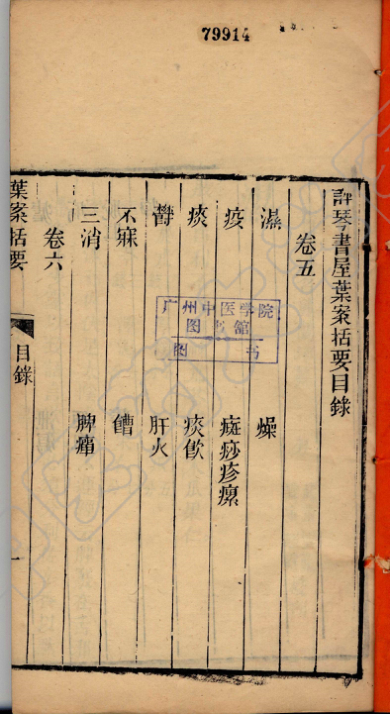 79914
評琴書屋葉案括要目錄
卷五
濕 燥
疫 癍痧疹瘰
痰 痰飲
鬱 肝火
不寐 嘈
三消 脾癉
卷六
葉案括要 目錄 一
广州中医学院
图書館
图 书